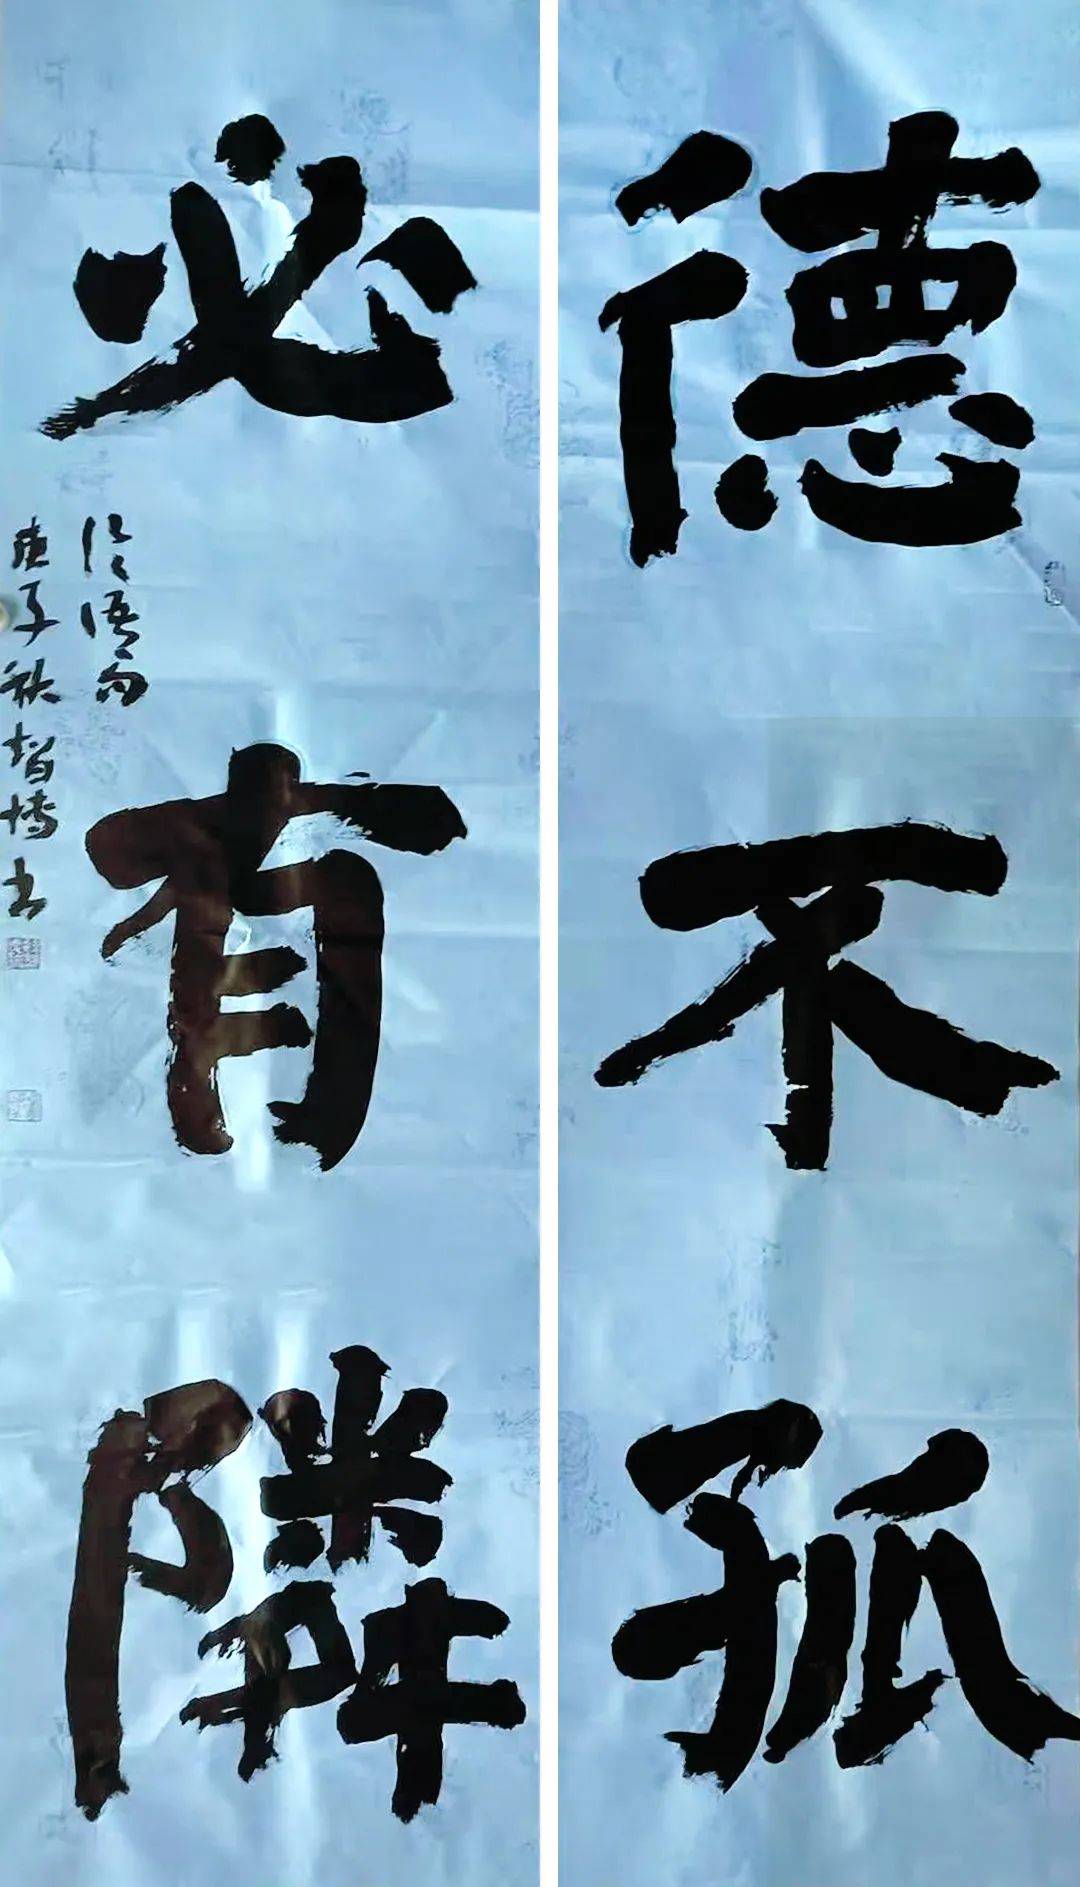 德不孤
必有隣
论语句
庚子秋智博书